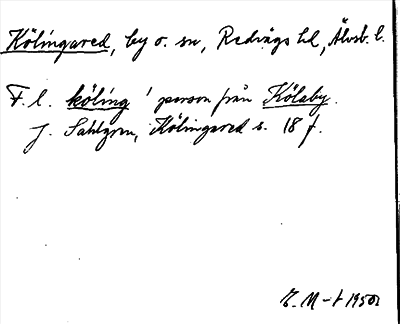 Kölingared, by o. sn, Redvägs hd, Älvsb. l.
F. l. köling 'person från Kölaby.
J. Sahlgren, Kölingared s. 18 f.
E. M-t 1950